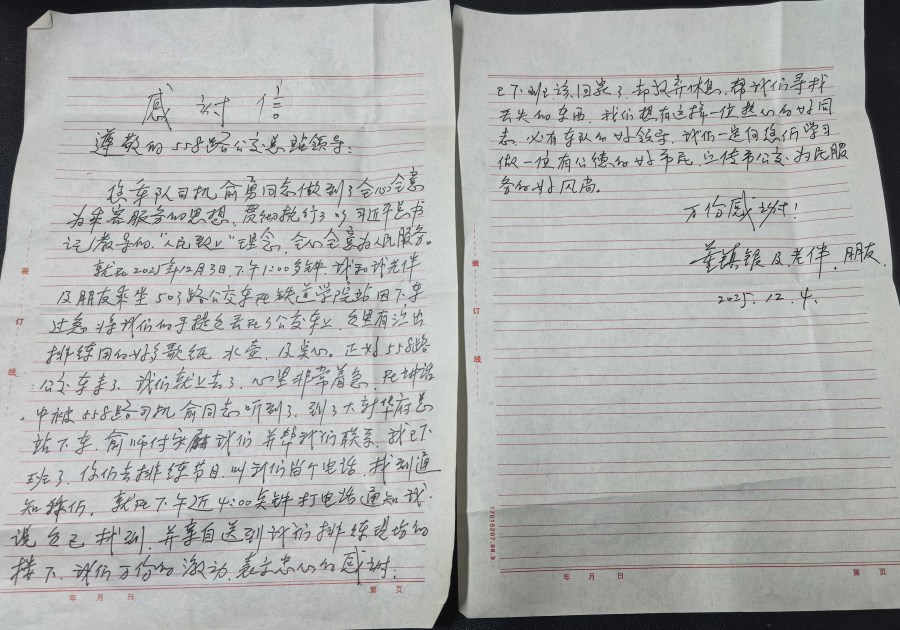 感谢信
尊敬的558路公交总站领导:
您车队司机俞勇同志做到了全心全意
为乘客服务的思想,贯彻执行了以习近平总书
记教导的“人民致上”理念,全心全意为人民服务。
就在2025年12月3日下午1:00多钟 我和我老伴
及朋友乘坐503路公交车在铁道学院站因下车
过急将我们的手提包丢在了公交车上,包里有演出
排练用的好多歌纸,水壶,及点心。正好558路
公交车来了,我们就上去了,心里非常着急,在讲话
中被558路司机俞同志听到了,到了大封华府总
站下车,俞师付安慰我们并帮我们联系,我已下
班了,你们去排练节目,叫我们留个电话,找到通
知你们,就在下午近4:00多钟打电话通知我,
说包已找到,并亲自送到我们排练现场的
楼下,我们万份的激动,表示忠心的感谢;
已下班该回家了,却放弃休息,帮我们寻找
丢失的东西,我们想有这样一位热心的好同
志,必有车队的好领导,我们一定向您们学习
做一位有公德的好市民,宣传市公交为民服
务的好风尚。
万份感谢!
董镇银及老伴,朋友
2025.12.4.
装
订
线
年 月 日
第 页
装
订
线
17015207.98.9
年 月 日
第 页